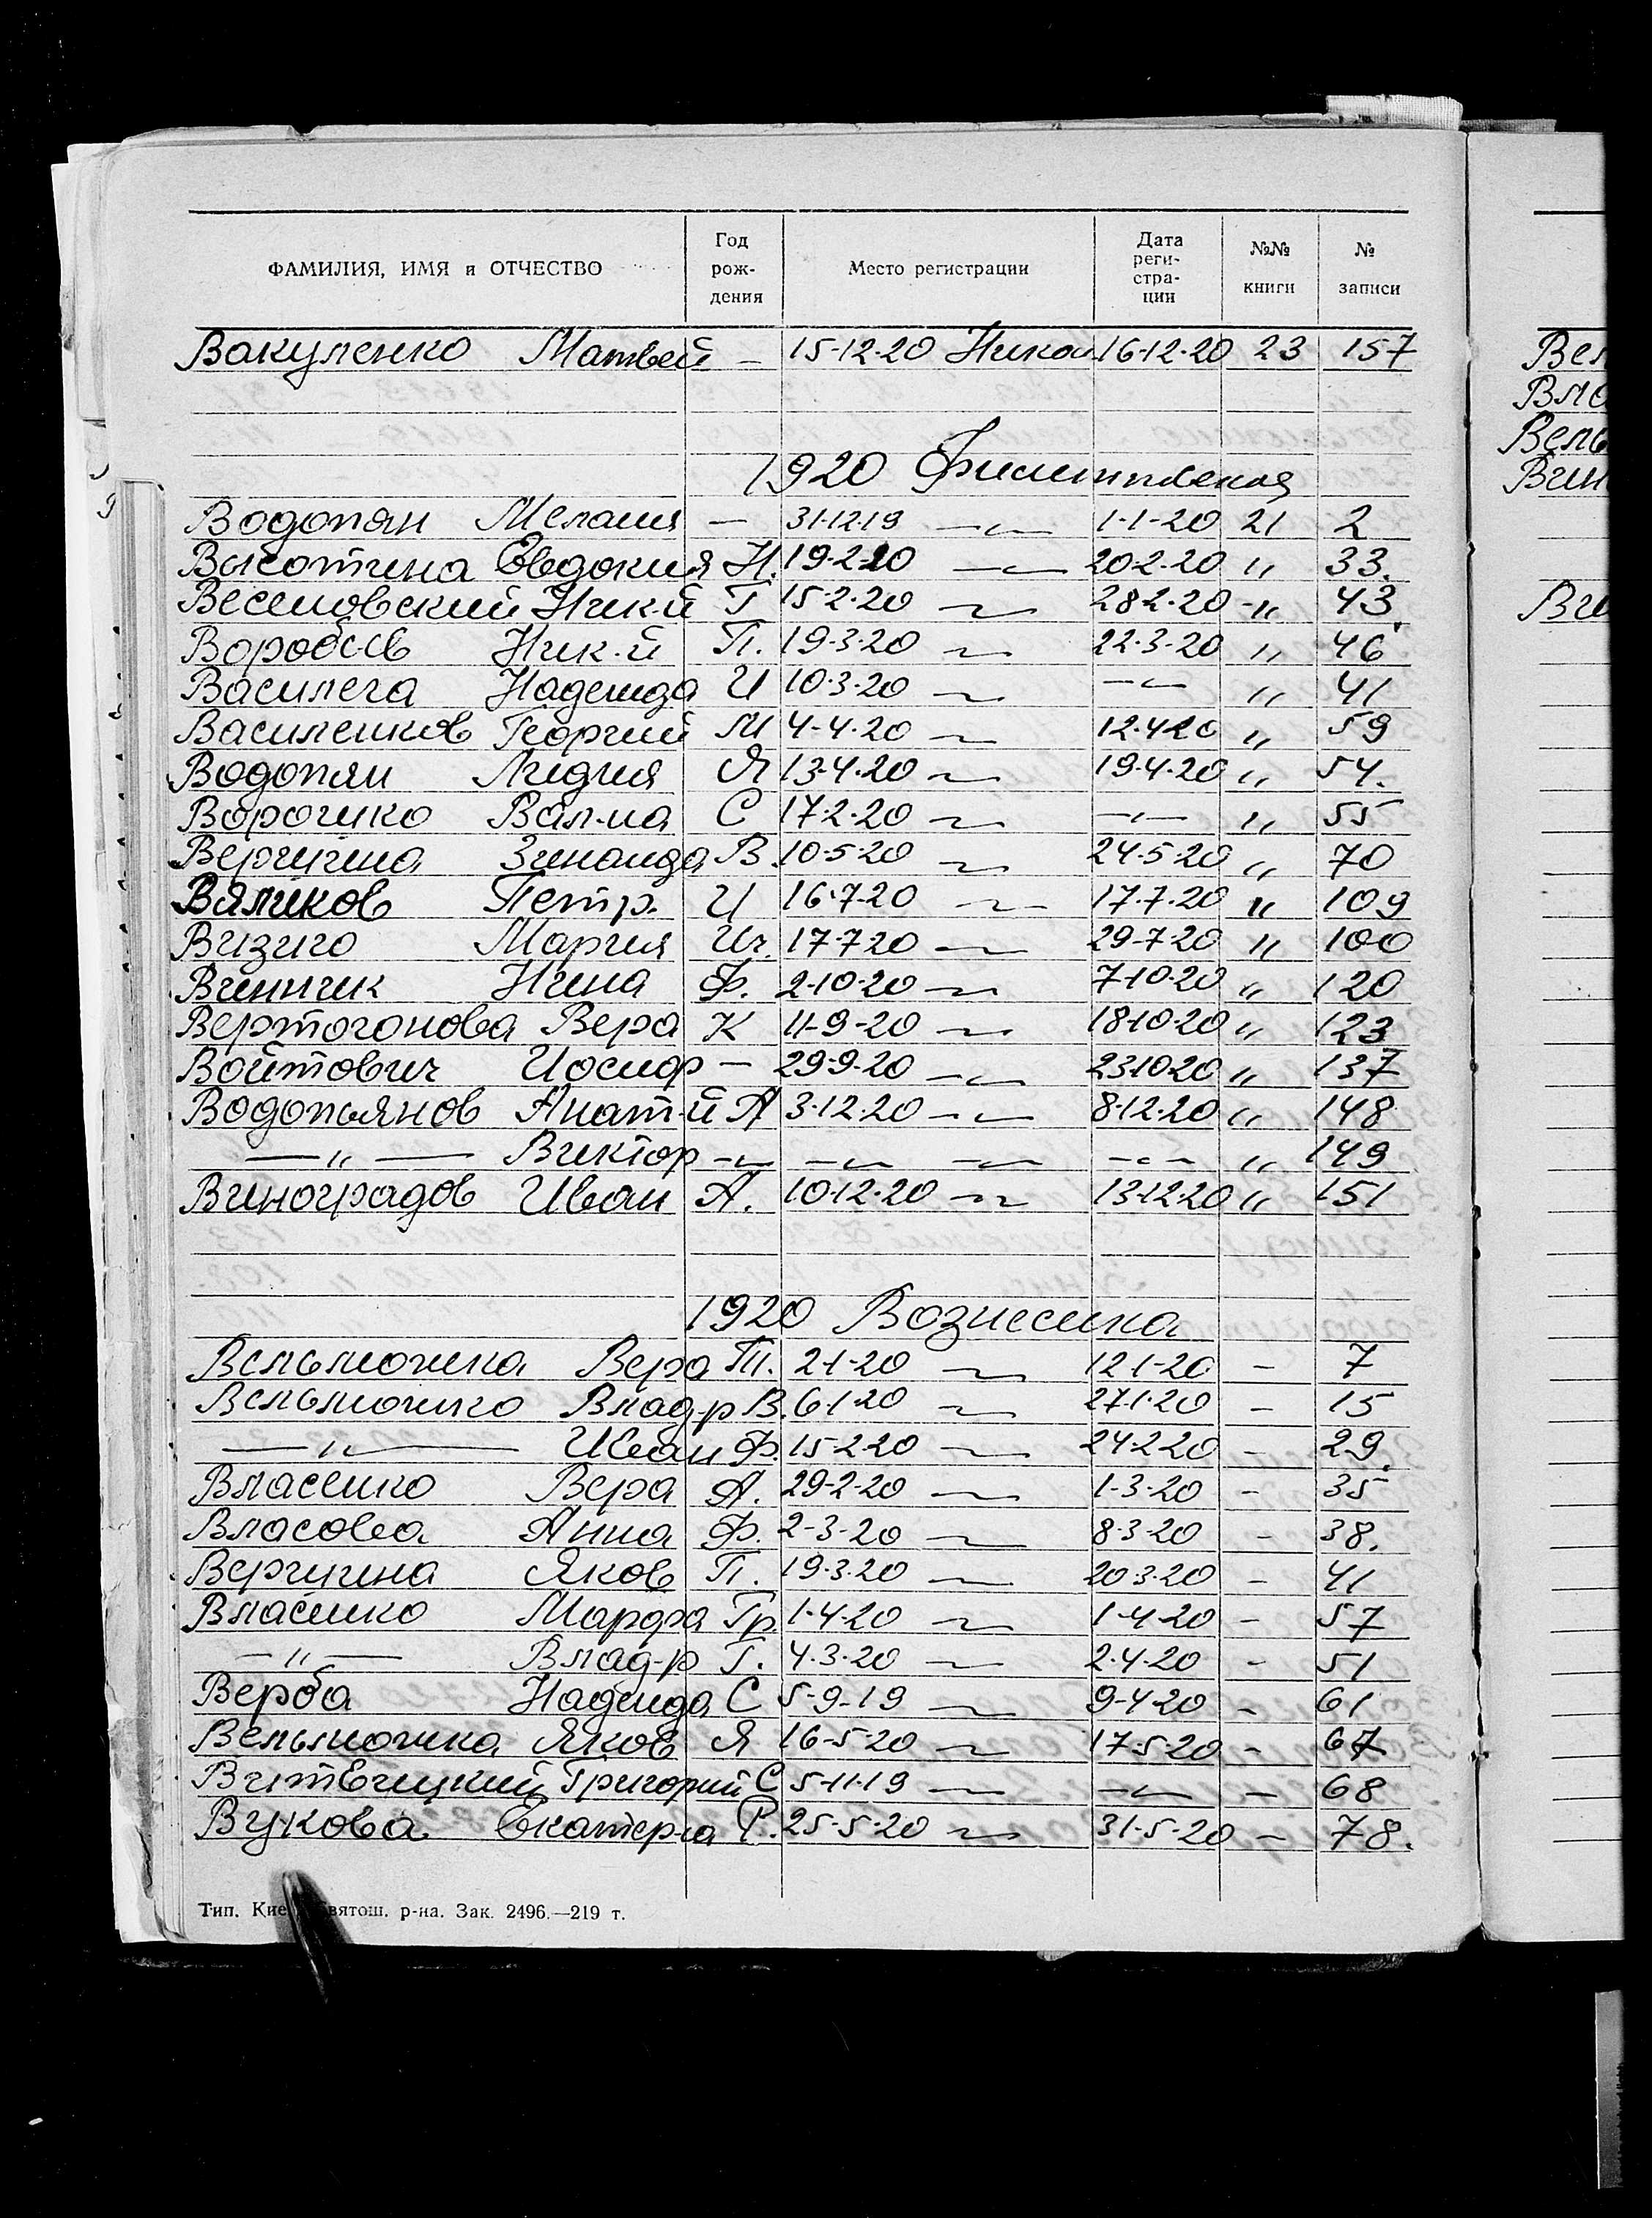 ФАМИЛИЯ, ИМЯ и ОТЧЕСТВО Год рож-дения Место регистрации Дата реги-стра-ции №№ книги № записи
Вакуленко Матвей – 15-12-20 Никол 16-12-20 23 157
1920 Филипповская
Водопян Мелания – 31-12-19 –"– 1-1-20 21 2
Высотина Евдокия Н. 19-2-20 –"– 20-2-20 " 33.
Веселовский Ник-й Г 15-2-20 –"– 28-2-20 -" 43
Воробьев Ник-й П. 19-3-20 –"– 22-3-20 " 46
Василега Надежда И 10-3-20 –"– –"– " 41
Василенков Георгий М 4-4-20 –"– 12-4-20 " 59
Водопян Лидия Я 13-4-20 –"– 19-4-20 " 54.
Ворочко Вал-на С 17-2-20 –"– –"– " 55
Вергигина Зинаида В. 10-5-20 –"– 24-5-20 " 70
Вяликов Петр. И 16-7-20 –"– 17-7-20 " 109
Визиго Мария Иг. 17-7-20 –"– 29-7-20 " 100
Винник Нина Ф. 2-10-20 –"– 7-10-20 " 120
Вертогонова Вера К 11-9-20 –"– 18-10-20 " 123
Войтович Иосиф – 29-9-20 –"– 23-10-20 " 137
Водопьянов Анат-й А 3-12-20 –"– 8-12-20 " 148
–"– Виктор –"– –"– –"– –"– " 149
Виноградов Иван А. 10-12-20 –"– 13-12-20 " 151
1920 Вознесенка
Вельможина Вера Т. 2-1-20 –"– 12-1-20 – 7
Вельможко Влад-р В. 6-1-20 –"– 27-1-20 – 15
–"– Иван Ф. 15-2-20 –"– 24-2-20 – 29.
Власенко Вера А. 29-2-20 –"– 1-3-20 – 35
Власова Анна Ф. 2-3-20 –"– 8-3-20 – 38.
Вергигина Яков П. 19-3-20 –"– 20-3-20 – 41
Власенко Марфа Гр. 1-4-20 –"– 1-4-20 – 57
–"– Влад-р Г. 4-3-20 –"– 2-4-20 – 51
Верба Надежда С 5-9-19 –"– 9-4-20 – 61
Вельможина Яков Я 16-5-20 –"– 17-5-20 – 67
Витвицкий Григорий С 5-11-19 –"– –"– – 68
Вукова Екатер-а Р. 25-5-20 –"– 31-5-20 – 78.
Тип. Кие Святош. р-на. Зак. 2496.—219 т.